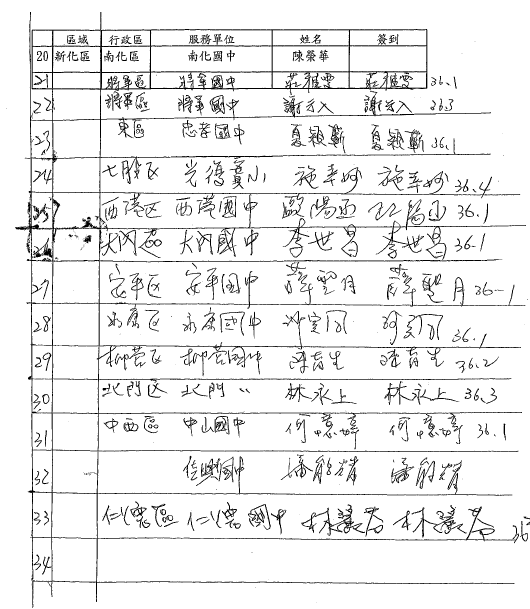 區域 行政區 服務單位 姓名 簽到
20 新化區 南化區 南化國中 陳榮華
21 將軍區 將軍國中 莊雅雯 莊雅雯 36.1
22 將軍區 將軍國中 謝 入 謝 入 36.3
23 東區 忠孝國中 夏穎 夏穎 36.1
24 七股區 光復實小 施 妙 施 妙 36.4
25 西港區 西港國中 歐陽 36.1
26 大內區 大內國中 李世昌 李世昌 36.1
27 安平區 安平國中 薛聖月 薛聖月 36-1
28 永康區 永康國中 36.1
29 柳營區 柳營國中 生 生 36.2
30 北門區 北門 〃 林永上 林永上 36.3
31 中西區 中山國中 何憶婷 何憶婷 36.1
32 國中 潘 潘
33 仁德區 仁德國中 林 林 36
34